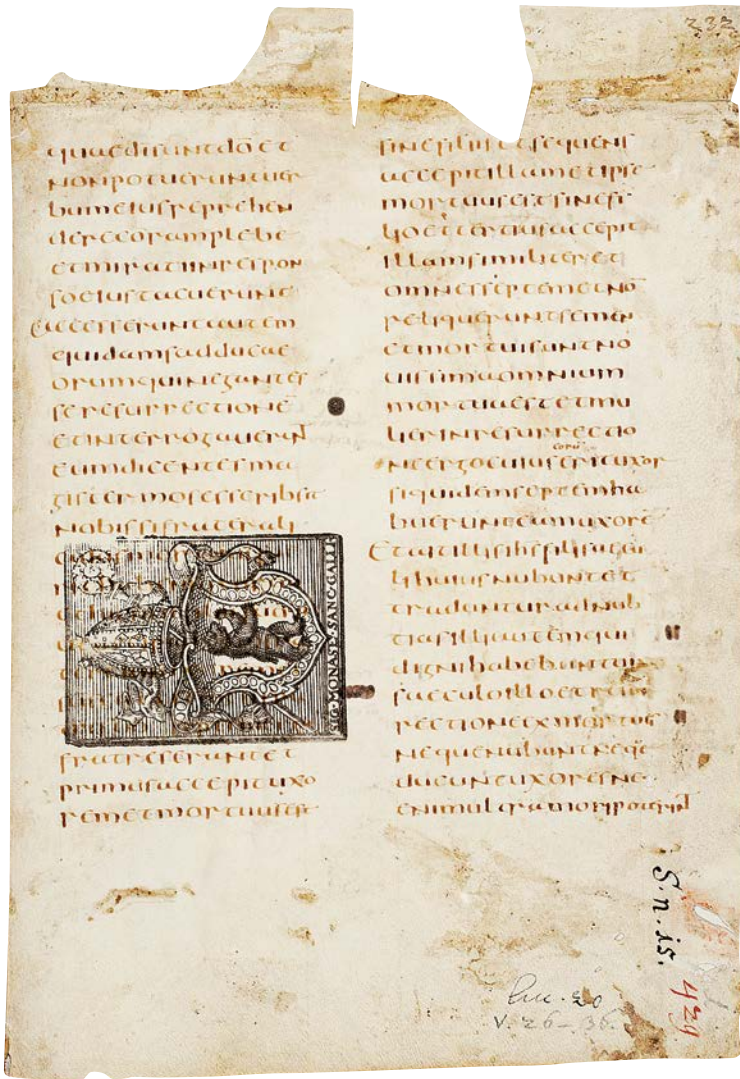 232
quaedisuntdō et
nonpotueruntuer
bumeiusreprehen
derecoramplebe
etmiratiinrespon
soeiustacuerunt
accesseruntautem
quidamsadducae
orumquinegantes
seresurrectionē
etinterrogauerunt
eumdicentesma
gistermosesscribsit
nobissifraterali
fratreseruntet
primusaccepituxo
remetmortuusest
SIG·MONAST·SANC·GALLI
sinefiliisetsequens
accepitillametipse
mortuusestsinefi
lioettertiusaccepit
illamsimiliteret
omnesseptemetnō
reliqueruntsemen
etmortuisuntno
uissimaomnium
mortuaestetmu
lierinresurrectio
neergocuiuserituxor
siquidemseptemha
buerunteamuxorē
etaitillisihsfilisaecu
lihuiusnubuntet
tradunturadnub
tiasilliautemqui
dignihabebuntur
saeculoilloetresur
rectioneexmortuis
nequenubuntneq
ducuntuxoresne
enimultramoripoterunt
S. n. 15.
429
Luc. 20
v. 26-36.